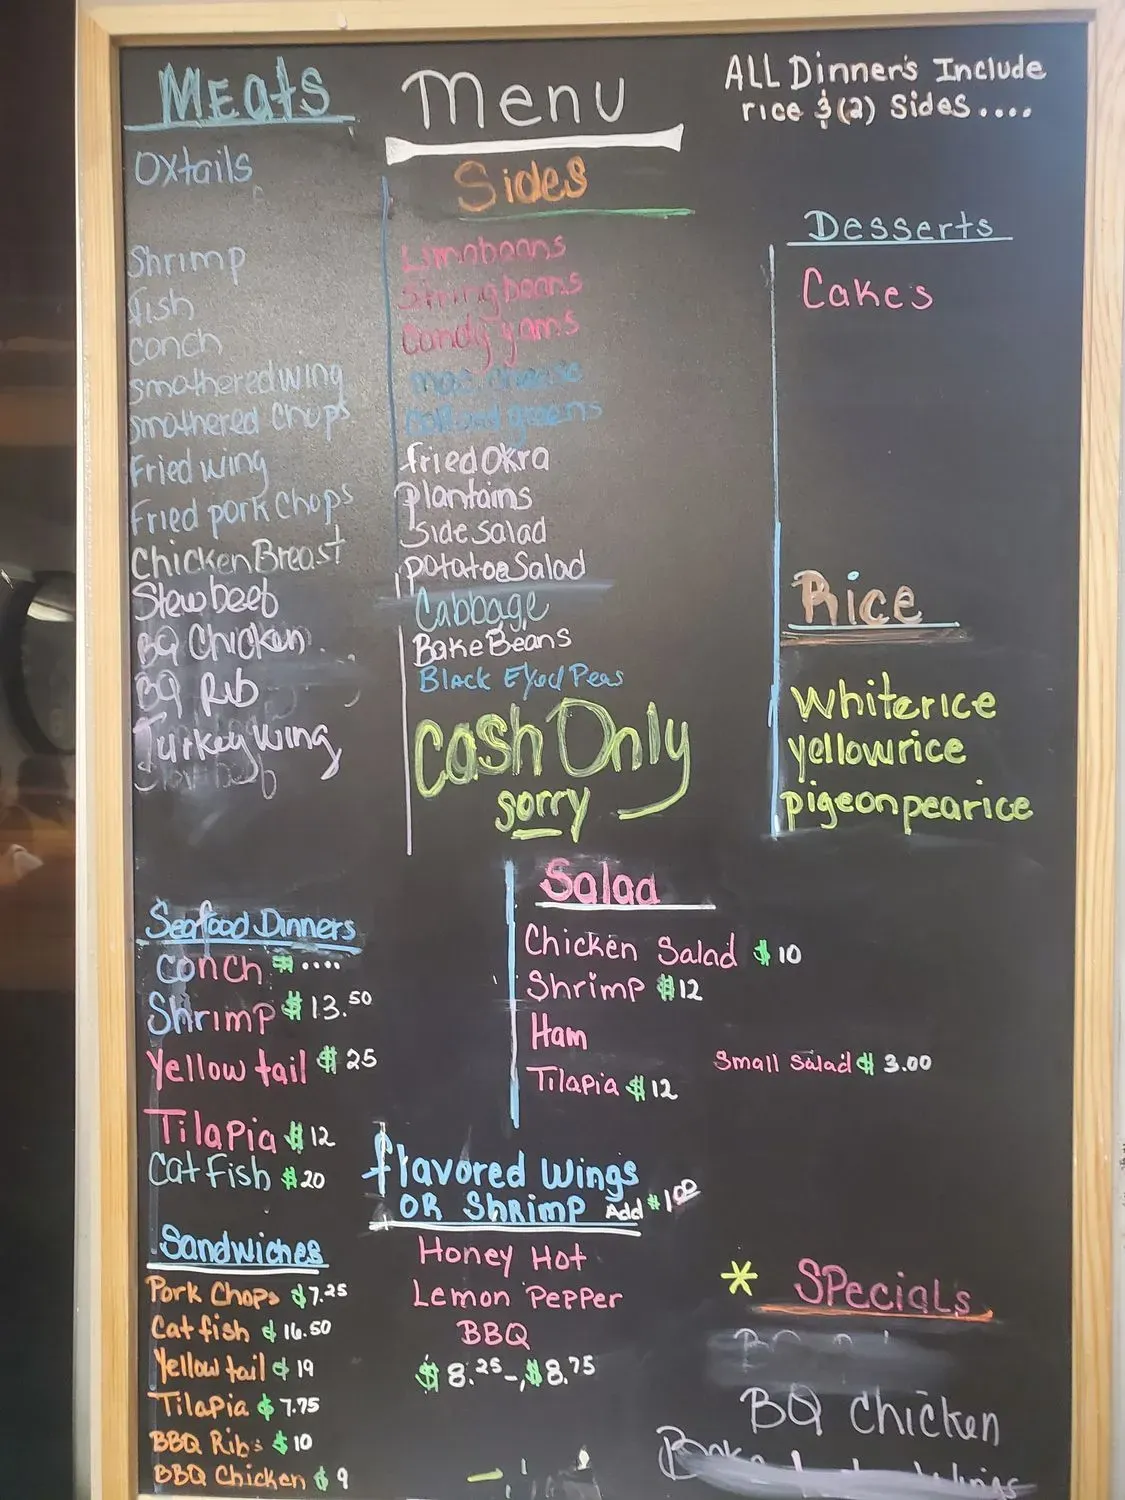 Menu
ALL Dinner's Include
rice & (2) Sides....
Meats
Oxtails
Shrimp
fish
conch
smothered wing
smothered Chops
Fried wing
Fried pork Chops
Chicken Breast
Stew beef
BQ Chicken
BQ Rib
Turkey Wing
Sides
Limabeans
Stringbeans
Candy yams
mac cheese
Collard greens
fried Okra
plantains
Side Salad
potatoe Salad
Cabbage
Bake Beans
Black Eyed Peas
Cash Only
sorry
Desserts
Cakes
Rice
Whiterice
yellowrice
pigeonpearice
Seafood Dinners
Conch $....
Shrimp $13.50
Yellow tail $25
Tilapia $12
Cat Fish $20
Salad
Chicken Salad $10
Shrimp $12
Ham
Tilapia $12
Small Salad $3.00
Sandwiches
Pork Chops $7.25
Cat fish $16.50
Yellow tail $19
Tilapia $7.75
BBQ Ribs $10
BBQ Chicken $9
flavored Wings
OR Shrimp Add $1.00
Honey Hot
Lemon Pepper
BBQ
$8.25-, $8.75
* SPecials
BQ Chicken